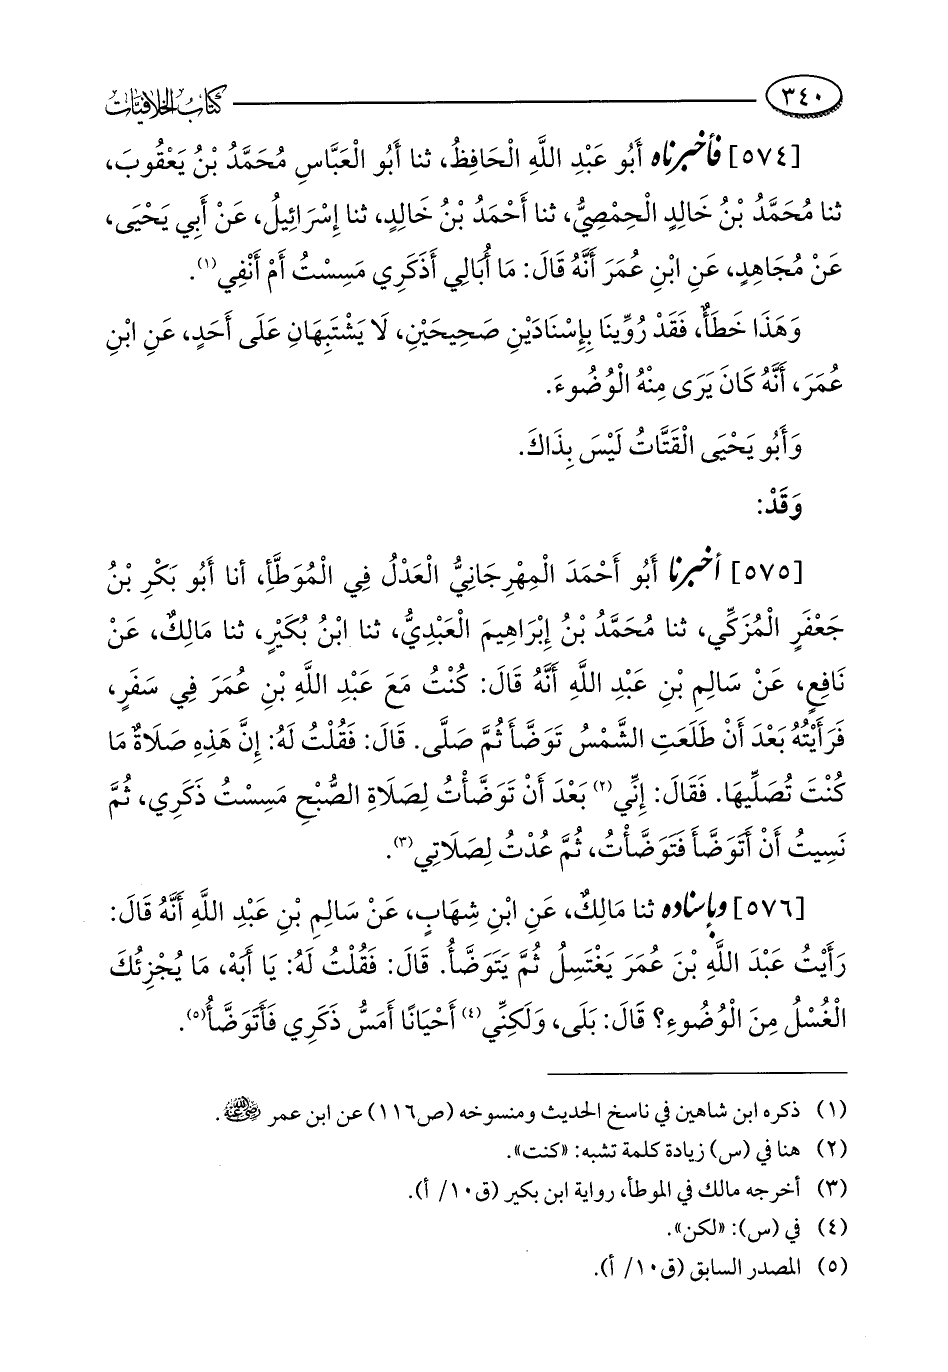 ٣٤٠ كتاب الخلافيات
[٥٧٤] فأخبرناه أَبُو عَبْدِ اللَّهِ الْحَافِظُ، ثنا أَبُو الْعَبَّاسِ مُحَمَّدُ بْنُ يَعْقُوبَ،
ثنا مُحَمَّدُ بْنُ خَالِدٍ الْحِمْصِيُّ، ثنا أَحْمَدُ بْنُ خَالِدٍ، ثنا إِسْرَائِيلُ، عَنْ أَبِي يَحْيَى،
عَنْ مُجَاهِدٍ، عَنِ ابْنِ عُمَرَ أَنَّهُ قَالَ: مَا أُبَالِي أَذَكَرِي مَسِسْتُ أَمْ أَنْفِي(١).
وَهَذَا خَطَأٌ، فَقَدْ رُوِّينَا بِإِسْنَادَيْنِ صَحِيحَيْنِ، لَا يَشْتَبِهَانِ عَلَى أَحَدٍ، عَنِ ابْنِ
عُمَرَ، أَنَّهُ كَانَ يَرَى مِنْهُ الْوُضُوءَ.
وَأَبُو يَحْيَى الْقَتَّاتُ لَيْسَ بِذَاكَ.
وَقَدْ:
[٥٧٥] أخبرنا أَبُو أَحْمَدَ الْمِهْرِجَانِيُّ الْعَدْلُ فِي الْمُوَطَّأِ، أنا أَبُو بَكْرِ بْنُ
جَعْفَرٍ الْمُزَكِّي، ثنا مُحَمَّدُ بْنُ إِبْرَاهِيمَ الْعَبْدِيُّ، ثنا ابْنُ بُكَيْرٍ، ثنا مَالِكٌ، عَنْ
نَافِعٍ، عَنْ سَالِمِ بْنِ عَبْدِ اللَّهِ أَنَّهُ قَالَ: كُنْتُ مَعَ عَبْدِ اللَّهِ بْنِ عُمَرَ فِي سَفَرٍ،
فَرَأَيْتُهُ بَعْدَ أَنْ طَلَعَتِ الشَّمْسُ تَوَضَّأَ ثُمَّ صَلَّى. قَالَ: فَقُلْتُ لَهُ: إِنَّ هَذِهِ صَلَاةٌ مَا
كُنْتَ تُصَلِّيهَا. فَقَالَ: إِنِّي(٢) بَعْدَ أَنْ تَوَضَّأْتُ لِصَلَاةِ الصُّبْحِ مَسِسْتُ ذَكَرِي، ثُمَّ
نَسِيتُ أَنْ أَتَوَضَّأَ فَتَوَضَّأْتُ، ثُمَّ عُدْتُ لِصَلَاتِي(٣).
[٥٧٦] وبإسناده ثنا مَالِكٌ، عَنِ ابْنِ شِهَابٍ، عَنْ سَالِمِ بْنِ عَبْدِ اللَّهِ أَنَّهُ قَالَ:
رَأَيْتُ عَبْدَ اللَّهِ بْنَ عُمَرَ يَغْتَسِلُ ثُمَّ يَتَوَضَّأُ. قَالَ: فَقُلْتُ لَهُ: يَا أَبَهْ، مَا يُجْزِئُكَ
الْغُسْلُ مِنَ الْوُضُوءِ؟ قَالَ: بَلَى، وَلَكِنِّي(٤) أَحْيَانًا أَمَسُّ ذَكَرِي فَأَتَوَضَّأُ(٥).
(١) ذكره ابن شاهين في ناسخ الحديث ومنسوخه (ص١١٦) عن ابن عمر رضي الله عنه.
(٢) هنا في (س) زيادة كلمة تشبه: «كنت».
(٣) أخرجه مالك في الموطأ، رواية ابن بكير (ق١٠/ أ).
(٤) في (س): «لكن».
(٥) المصدر السابق (ق١٠/ أ).